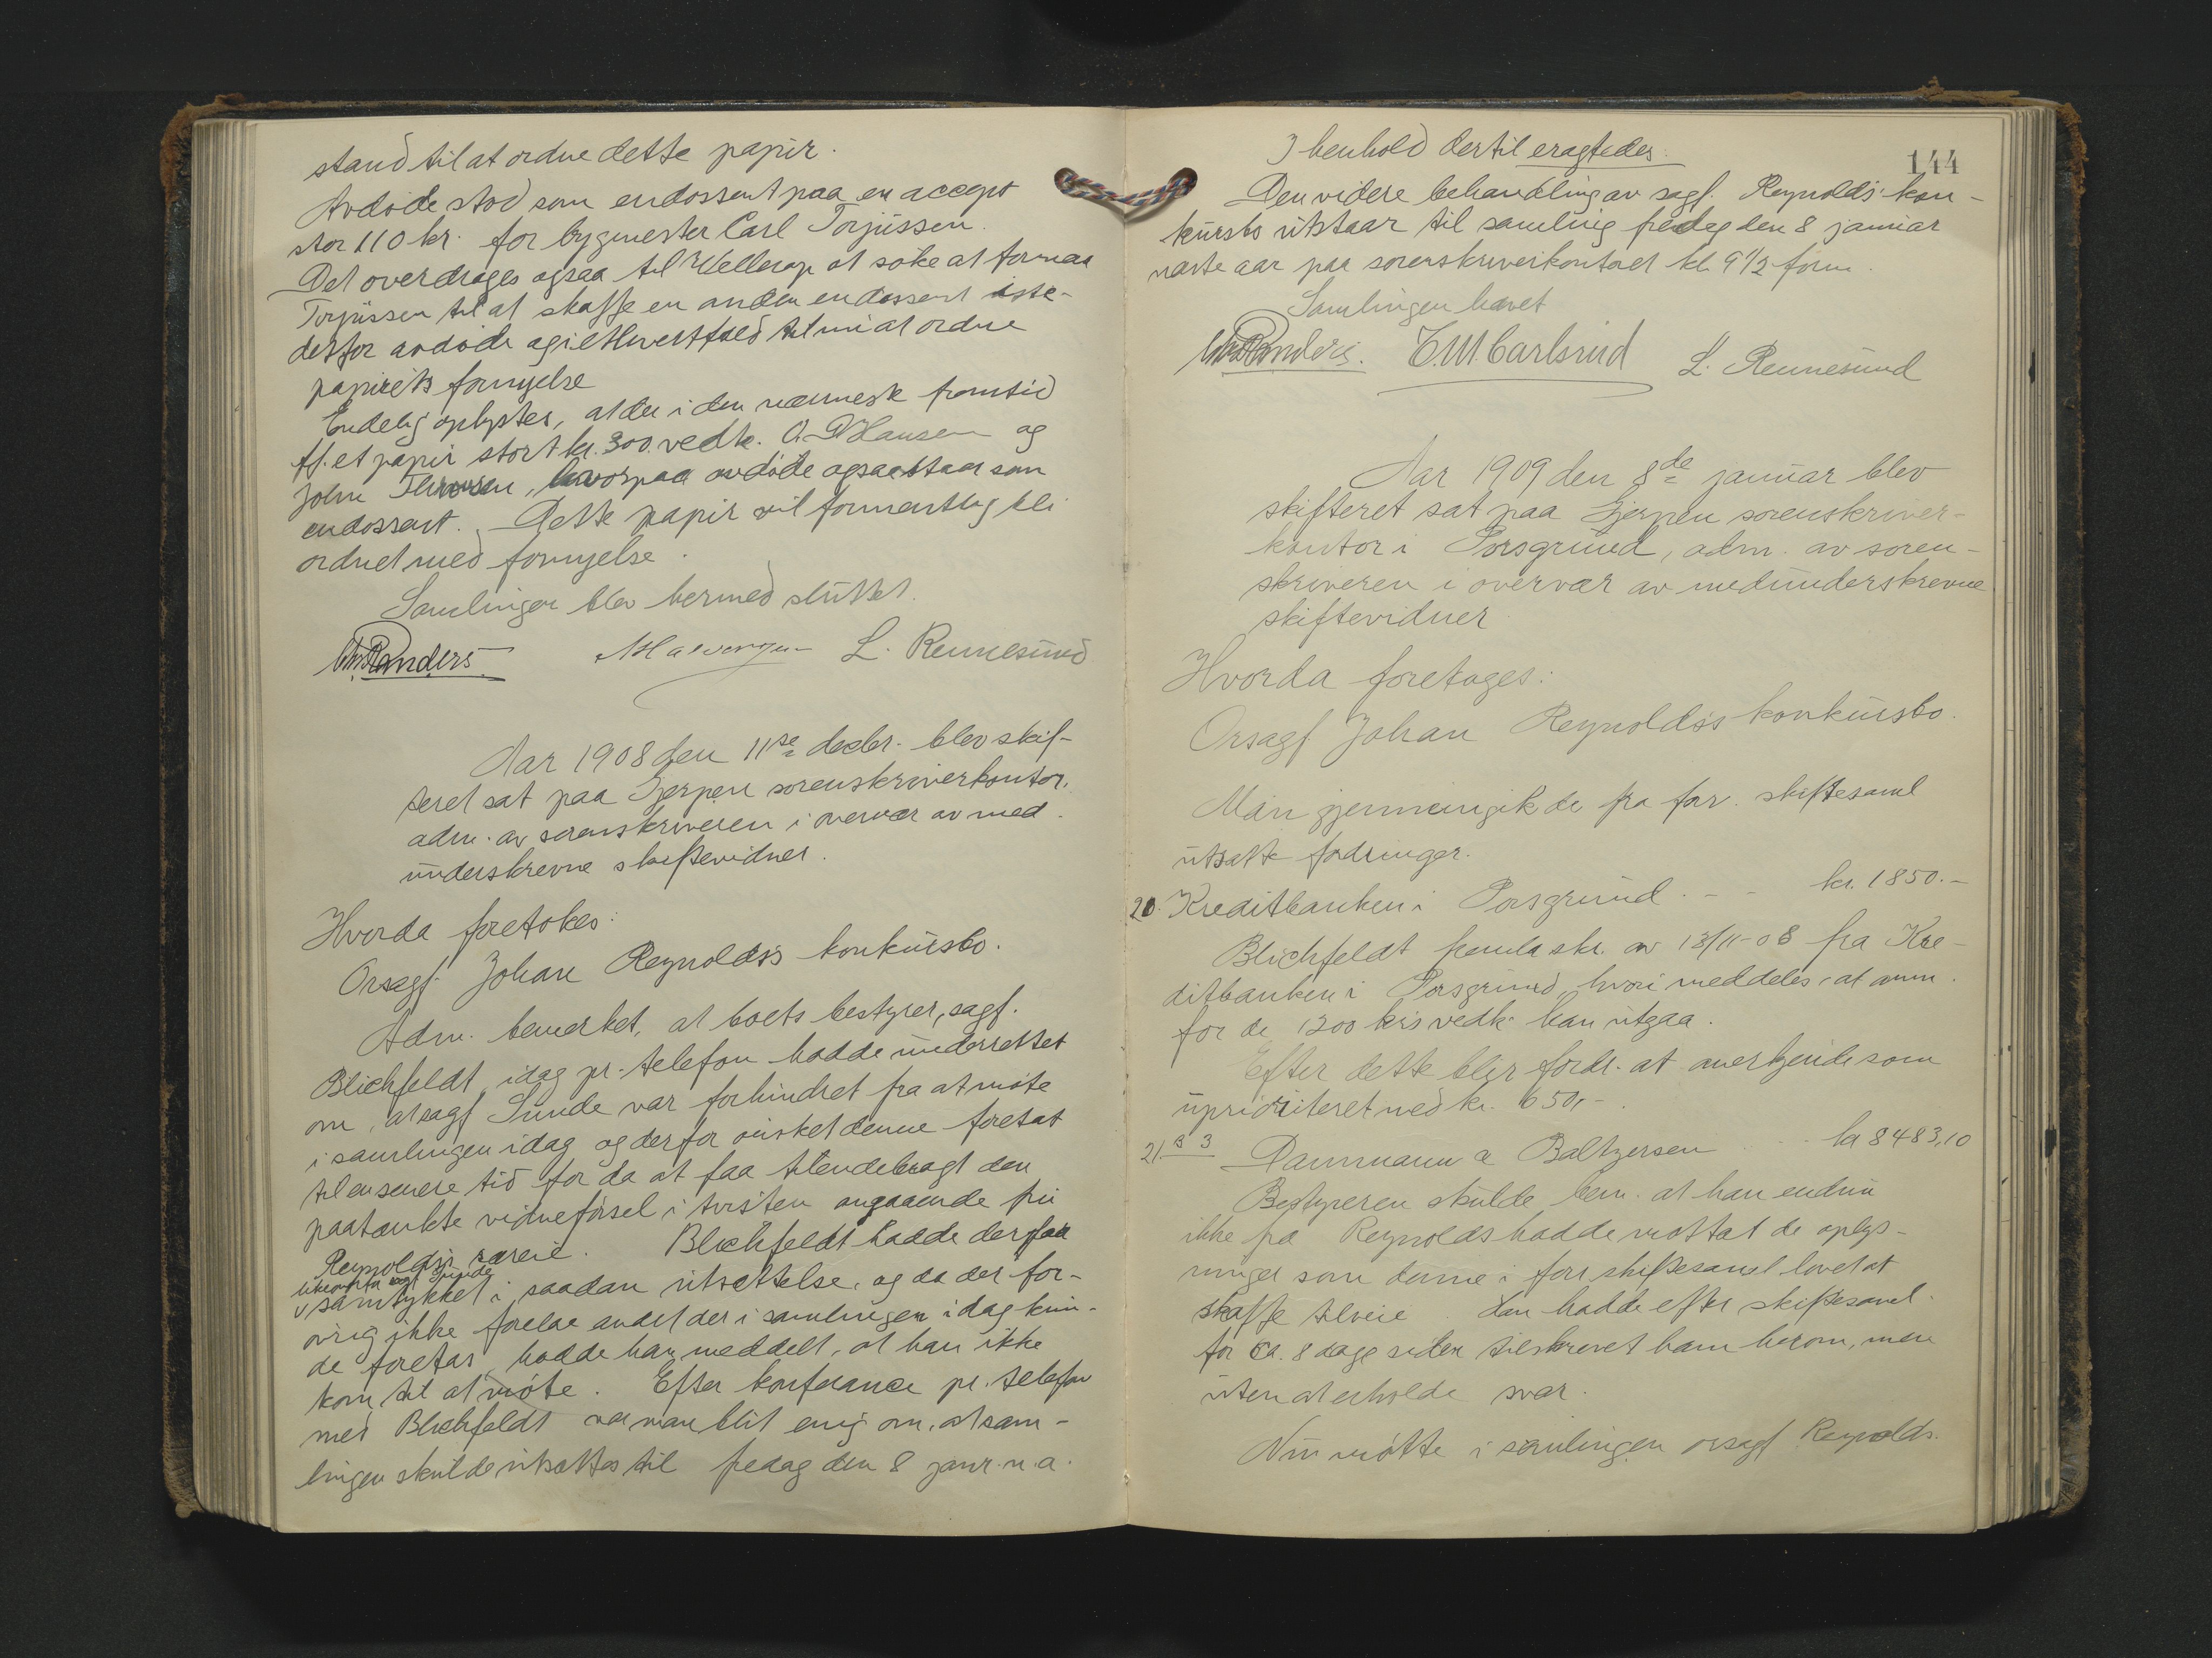 stand til at ordne dette papir.
Avdøde stod som endossent paa en accept
stor 110 kr. for bygmester Carl Torjussen.
Det overdrages ogsaa til Wellerop at søke at formaa
Torjussen til at skaffe en anden endossent iste-
detfor avdøde og i ethvert fald til nu at ordne
papirets fornyelse
Endelig oplystes, at der i den nærmeste fremtid
ff. et papir stort kr. 300. vedk. O. P. Hansen og
John, hvorpaa avdøde ogsaa staar som
endossent. Dette papir vil formentlig bli
ordnet med fornyelse.
Samlingen blev hermed sluttet.
Chr. Randers L. Rennesund
Aar 1908 den 11te decbr. blev skif-
teret sat paa Gjerpen sorenskriverkontor,
adm. av sorenskriveren i overvær av med
underskrevne skiftevidner.
Hvorda foretokes:
Orsagf. Johan Reynolds's konkursbo.
Adm. bemerket, at boets bestyrer, sagf.
Blichfeldt idag pr. telefon hadde underrettet
om, at sagf Sunde var forhindret fra at møte
i samlingen idag og derfor ønsket denne foretat
til en senere tid for da at faa tilendebragt den
paatænkte vidneførsel i tvisten angaaende fru
Reynolds's særeie. Blichfeldt hadde derfor
likeoverfor sagf Sunde
samtykket i saadan utsættelse, og da der for-
øvrig ikke forelaa andet der i samlingen idag kun-
de foretas, hadde han meddelt, at han ikke
kom til at møte. Efter konferance pr. telefon
med Blichfeldt var man blit enig om, at sam-
lingen skulde utsættes til fredag den 8 janr. n.a.
144
I henhold dertil eragtedes:
Den videre behandling av sagf. Reynolds' kon-
kursbo utstaar til samling fredag den 8 januar
næste aar paa sorenskriverkontoret kl. 9 1/2 form.
Samlingen hævet
Chr. Randers. C.M. Carlsrud L. Rennesund
Aar 1909 den 8de januar blev
skifteret sat paa Gjerpen sorenskriver-
kontor i Porsgrund, adm. av soren-
skriveren i overvær av medunderskrevne
skiftevidner
Hvorda foretages:
Orsagf Johan Reynolds's konkursbo.
Man gjennemgik de fra forr. skiftesaml
utsatte fordringer.
20. Kreditbanken i Porsgrund. - - kr. 1850.-
Blichfeldt fremla skr. av 13/11-08 fra Kre-
ditbanken i Porsgrund, hvori meddeles, at anm.
for de 1200 kr's vedk. kan utgaa.
Efter dette blir fordr. at anerkjende som
uprioriteret med kr. 650,-.
21. B 3 Dannmann & Baltzersen kr 8483,10
Bestyreren skulde bem. at han endnu
ikke fra Reynolds hadde mottat de oplys-
ninger som denne i forr skiftesaml lovet at
skaffe tilveie. Han hadde efter skiftesaml.
for ca. 8 dage siden tilskrevet ham herom, men
uten at erholde svar.
Nu møtte i samlingen orsagf Reynolds.